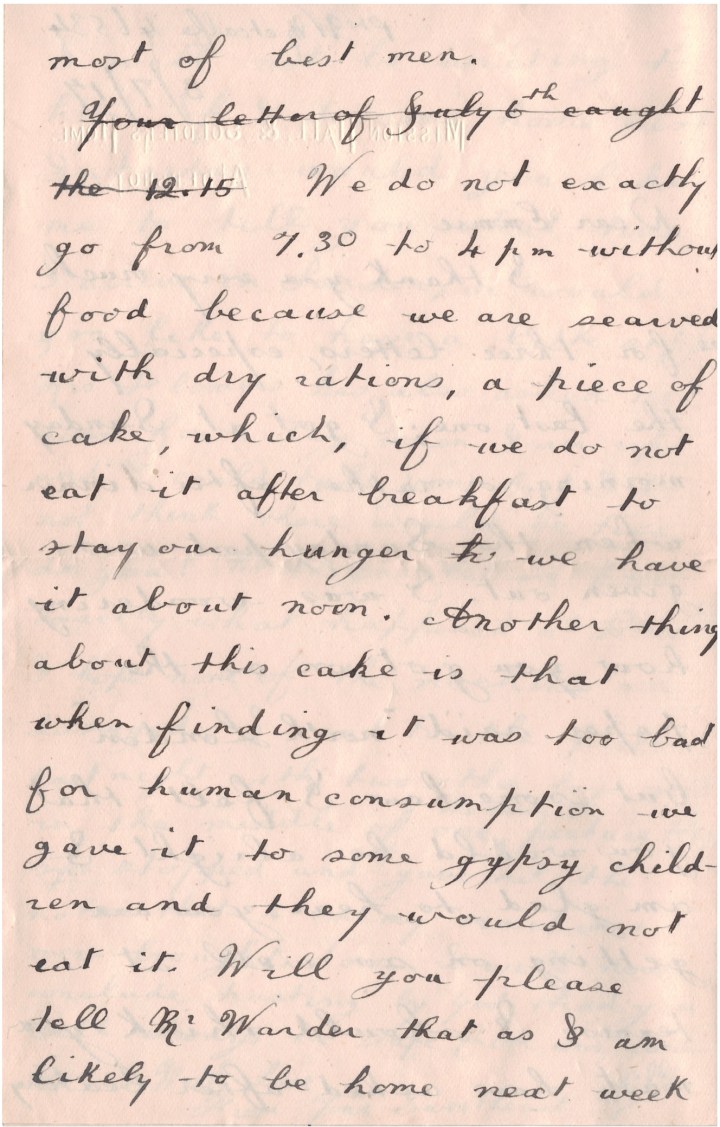 most of best men.
Your letter of July 6th caught
the 12.15 We do not exactly
go from 7.30 to 4 pm without
food because we are searved
with dry rations, a piece of
cake, which, if we do not
eat it after breakfast to
stay our hunger we have
it about noon. Another thing
about this cake is that
when finding it was too bad
for human consumption we
gave it to some gypsy child-
ren and they would not
eat it. Will you please
tell Mr Warder that as I am
likely to be home next week